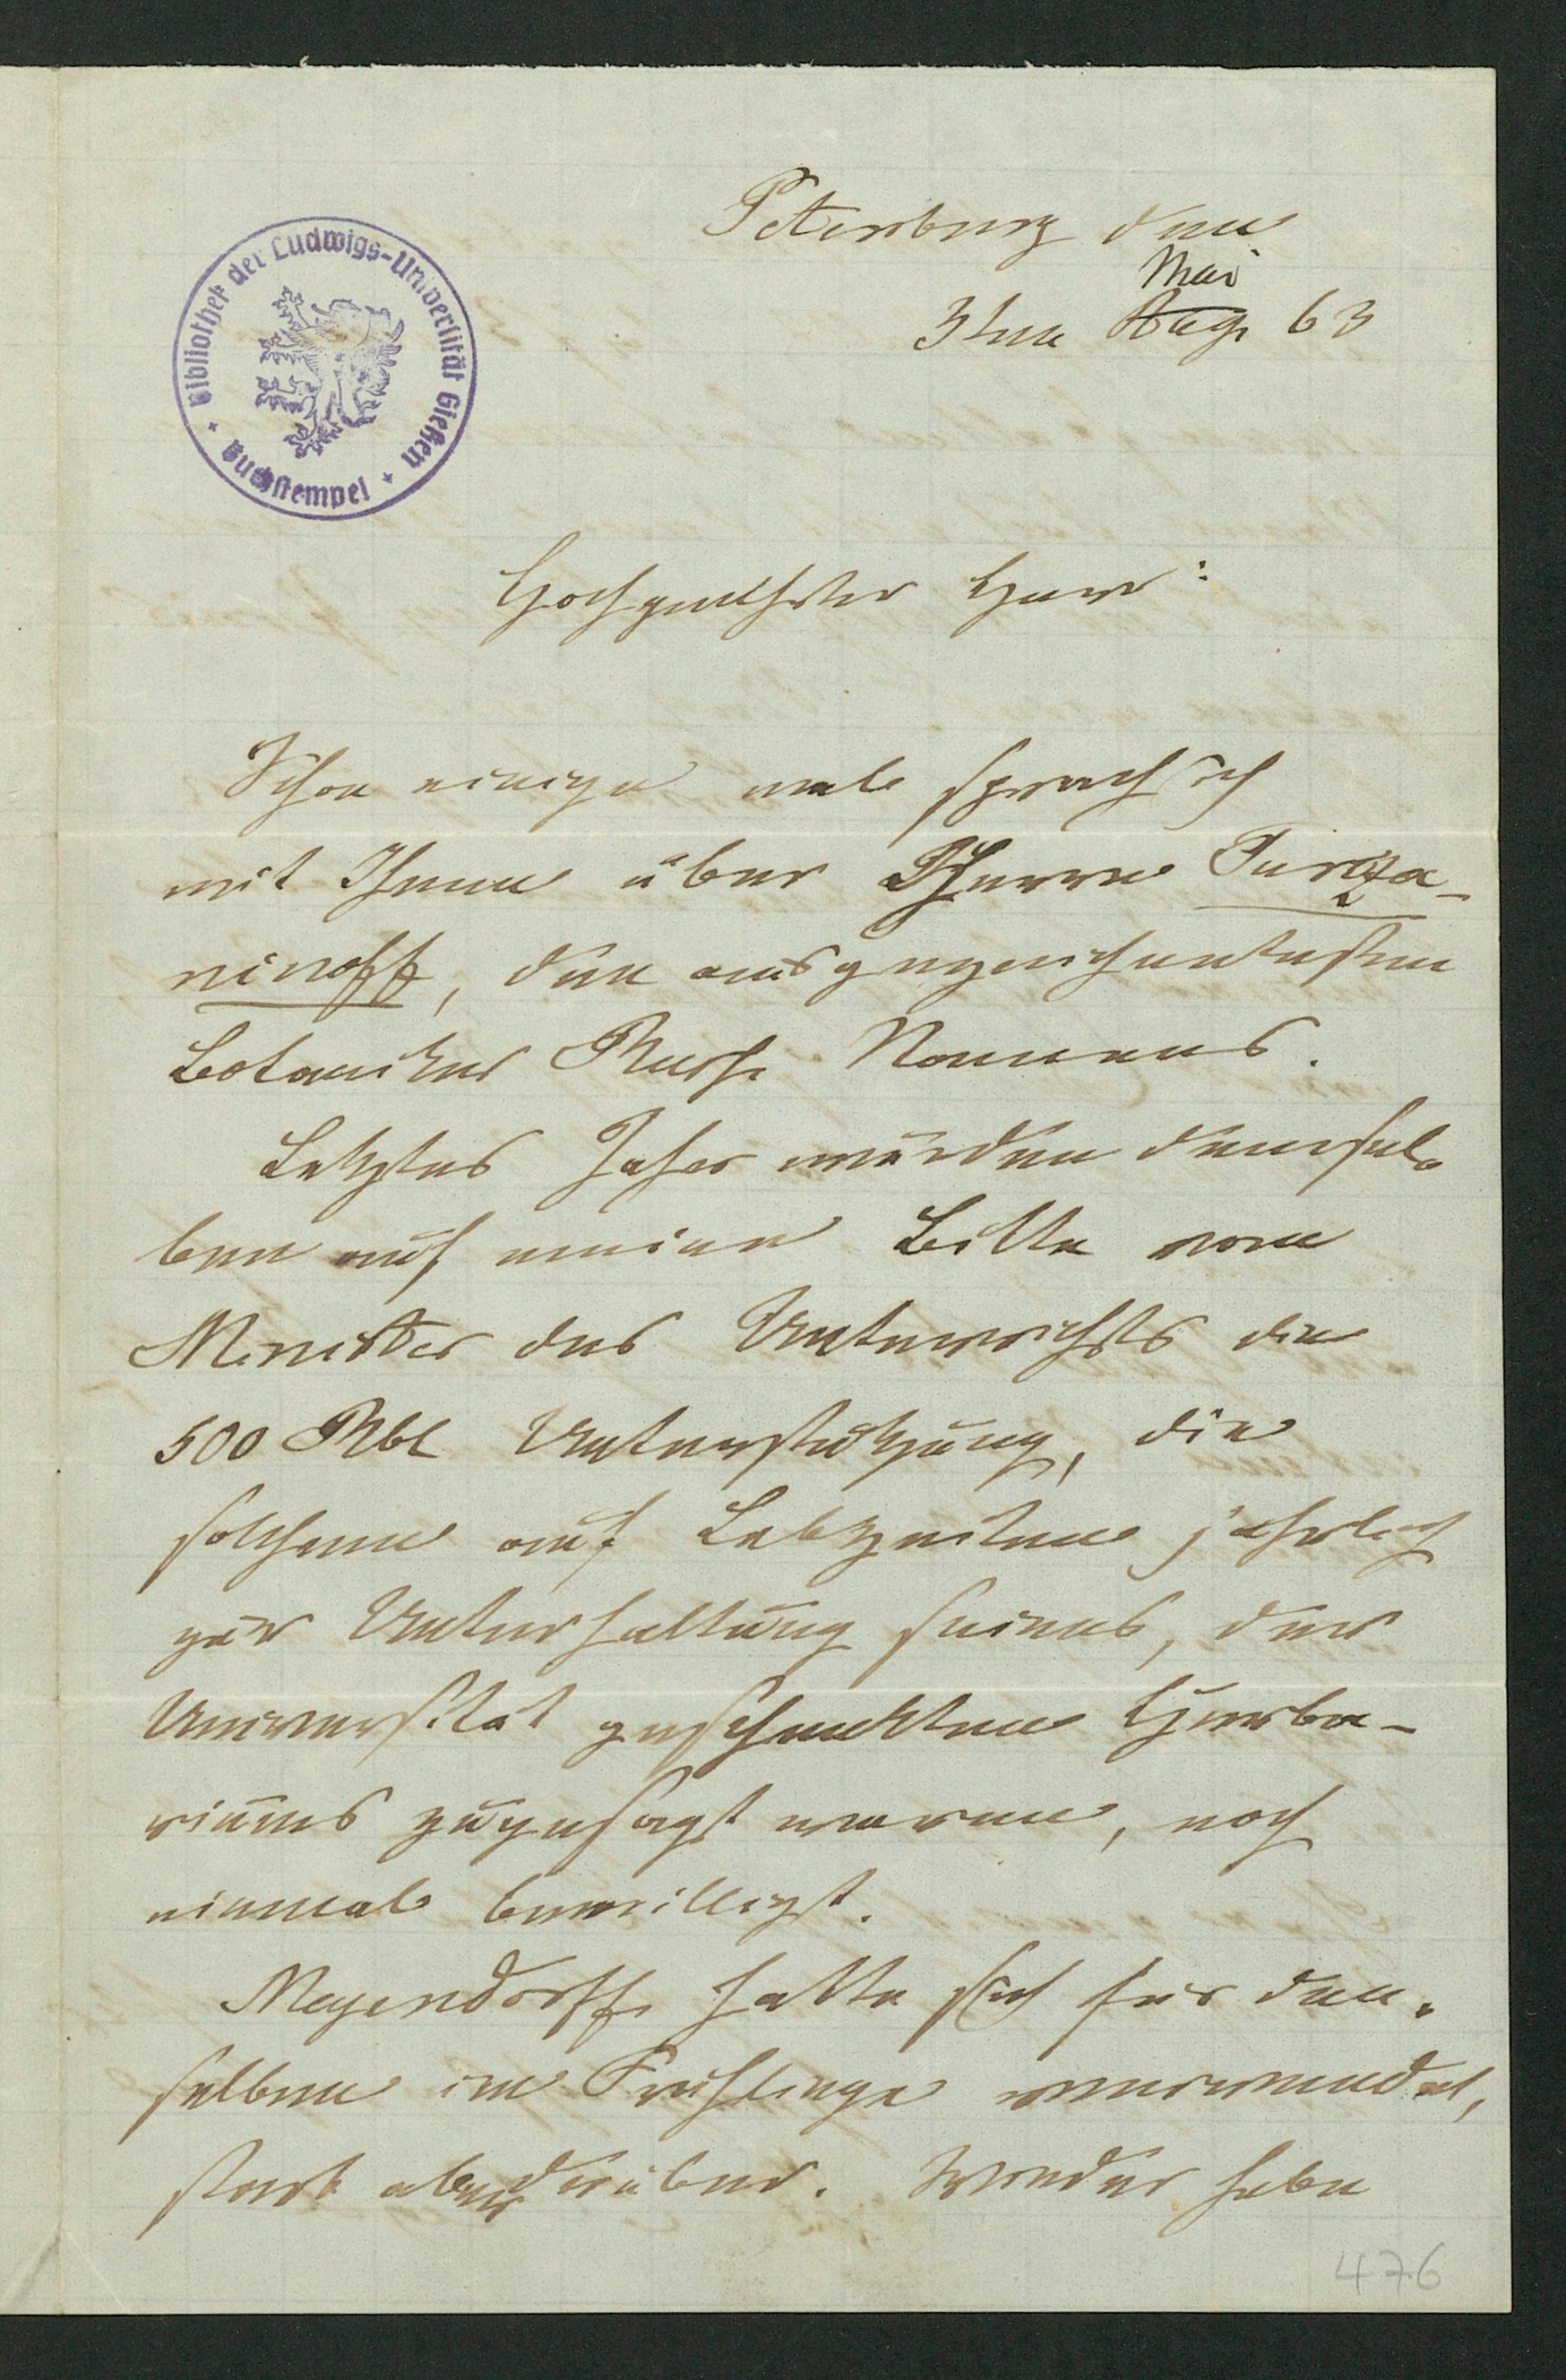 Petersburg den
Mai
3ten Aug. 63
Bibliothek der Ludwigs-Universität Gießen
Buchstempel
Hochgeehrter Herr:
Schon einige male sprach ich
mit Ihnen über Herrn Turcza-
ninoff, den ausgezeichnetesten
Botaniker Russ. Namens.
Letztes Jahr würden demsel-
ben auf meine Bitte vom
Minister des Unterrichts die
500 Rbl Unterstützung, die
solchem auf Lebzeiten jährlich
zur Unterhaltung seines, der
Universität geschenkten Herba-
riums zugesagt waren, noch
einmal bewilligt.
Meyendorff hatte sich für den-
selben im Frühlinge verwendet,
starb aber darüber. Weder habe
476